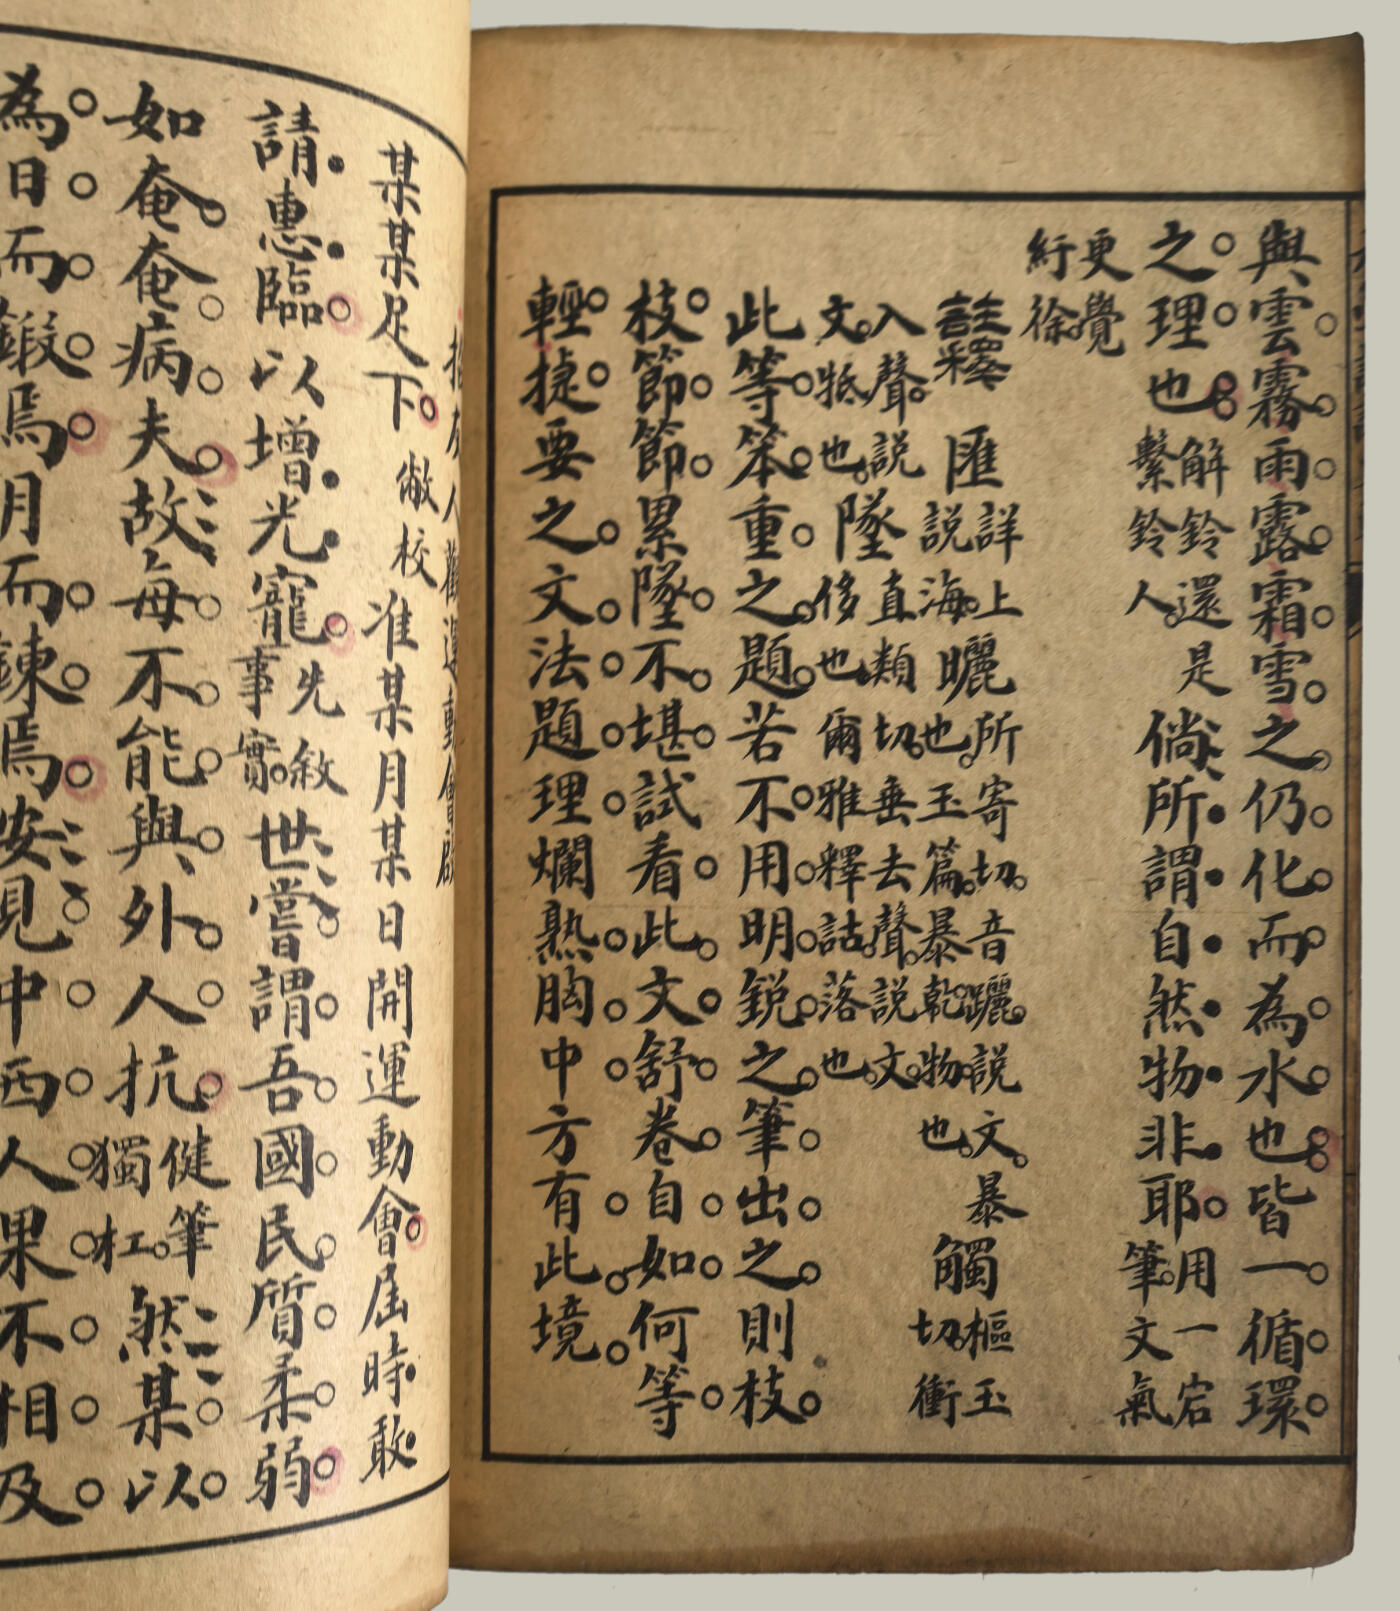 與雲霧雨露霜雪之仍化而為水也皆一循環
之理也解鈴還是繫鈴人倘所謂自然物非耶用一宕筆文氣
更覺紆徐
註釋 匯詳上説海曬所寄切音躧説文暴也玉篇暴乾物也觸樞玉切衝
入聲説文牴也墜直類切垂去聲説文侈也爾雅釋詁落也
此等笨重之題若不用明鋭之筆出之則枝
枝節節累墜不堪試看此文舒卷自如何等
輕捷要之文法題理爛熟胸中方有此境
人勸運動會啟
某某足下敝校准某月某日開運動會屆時敢
請惠臨以增光寵先敘事實世嘗謂吾國民質柔弱
如奄奄病夫故每不能與外人抗健筆獨杠然某以
為日而鍛焉月而鍊焉安見中西人果不相及